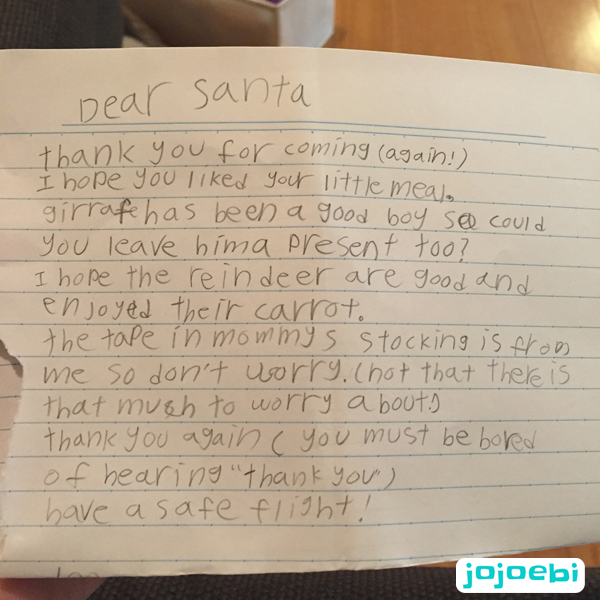 Dear Santa
thank you for coming (again!)
I hope you liked your little meal.
girrafe has been a good boy so could
you leave him a present too?
I hope the reindeer are good and
enjoyed their carrot.
the tape in mommys stocking is from
me so don't worry. (not that there is
that much to worry about.)
thank you again ( you must be bored
of hearing "thank you")
have a safe flight!
jojoebi